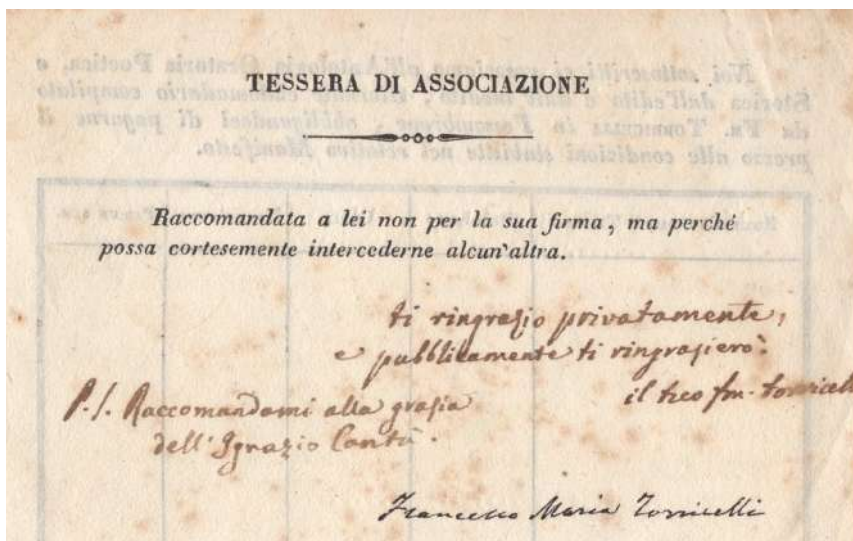 TESSERA DI ASSOCIAZIONE
Raccomandata a lei non per la sua firma, ma perché
possa cortesemente intercederne alcun'altra.
ti ringrazio privatamente,
e pubblicamente ti ringrazierò.
il tuo fm. Torricelli
P.S. Raccomandami alla grazia
dell'Ignazio Cantù.
Francesco Maria Torricelli